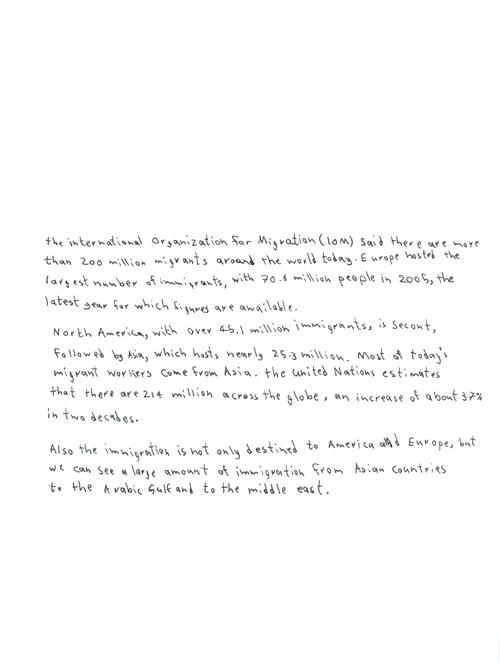 the international Organization for Migration (IOM) said there are more
than 200 million migrants around the world today. Europe hosted the
largest number of immigrants, with 70.6 million people in 2005, the
latest year for which figures are available.
North America, with over 45.1 million immigrants, is Second,
followed by Asia, which hosts nearly 25.3 million. Most of today's
migrant workers come from Asia. the United Nations estimates
that there are 214 million across the globe, an increase of about 37%
in two decades.
Also the immigration is not only destined to America and Europe, but
we can see a large amount of immigration from Asian countries
to the Arabic Gulf and to the middle east.